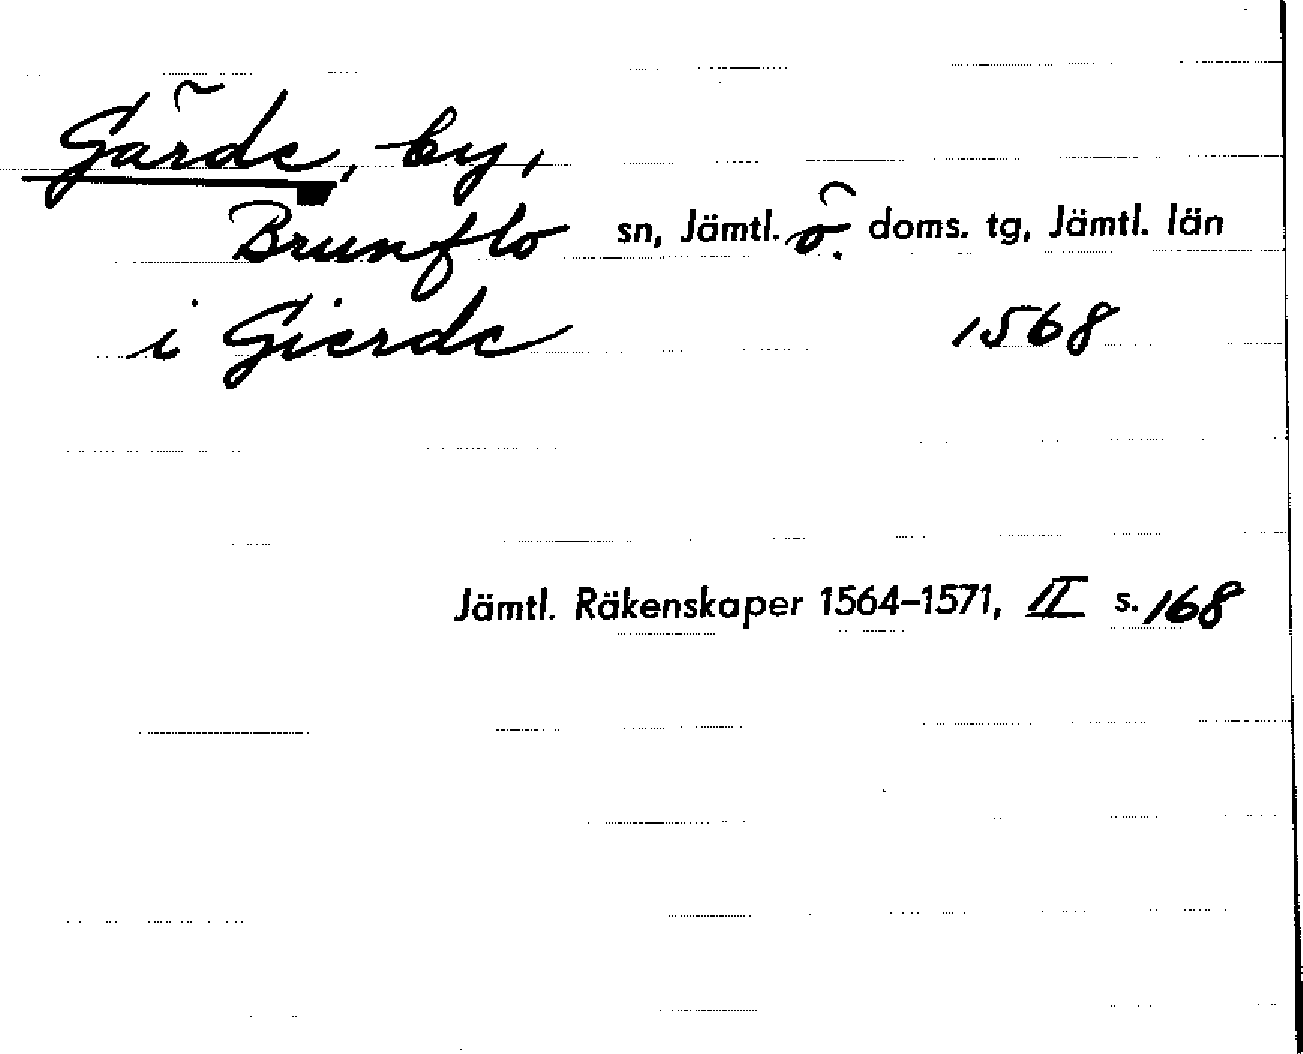 Gärde, by,
Brunflo sn, Jämtl. ö. doms. tg, Jämtl. län
i Gierde 1568
Jämtl. Räkenskaper 1564-1571, II s. 168